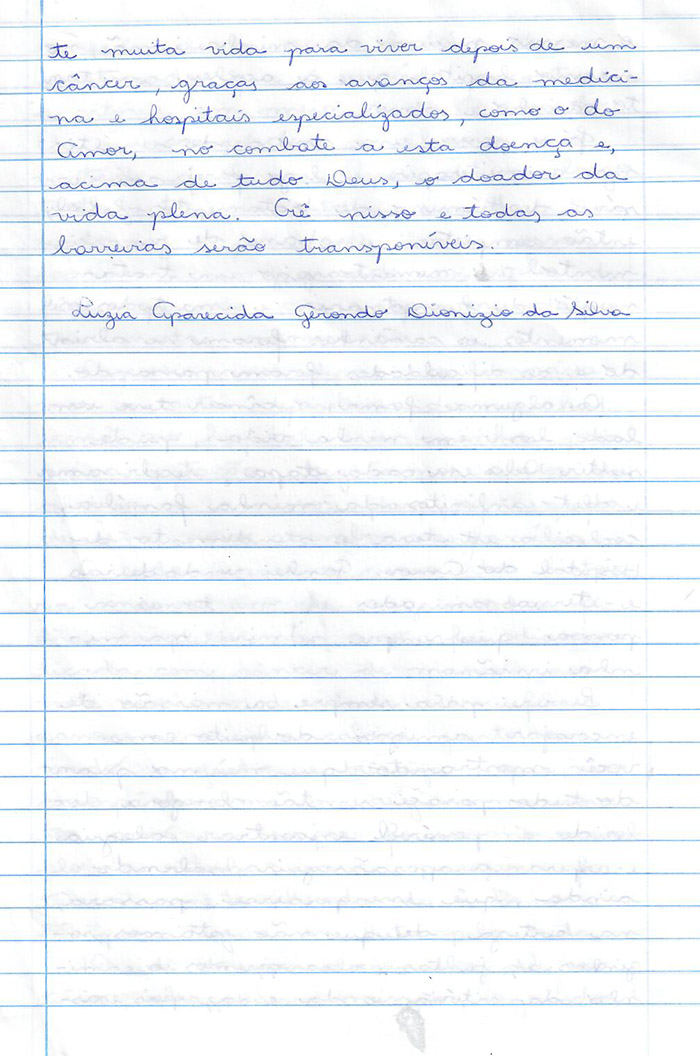 te muita vida para viver depois de um
câncer, graças aos avanços da medici-
na e hospitais especializados, como o do
Amor, no combate a esta doença e,
acima de tudo Deus, o doador da
vida plena. Crê nisso e todas as
barreiras serão transponíveis.
Luzia Aparecida Gerondo Dionizio da Silva